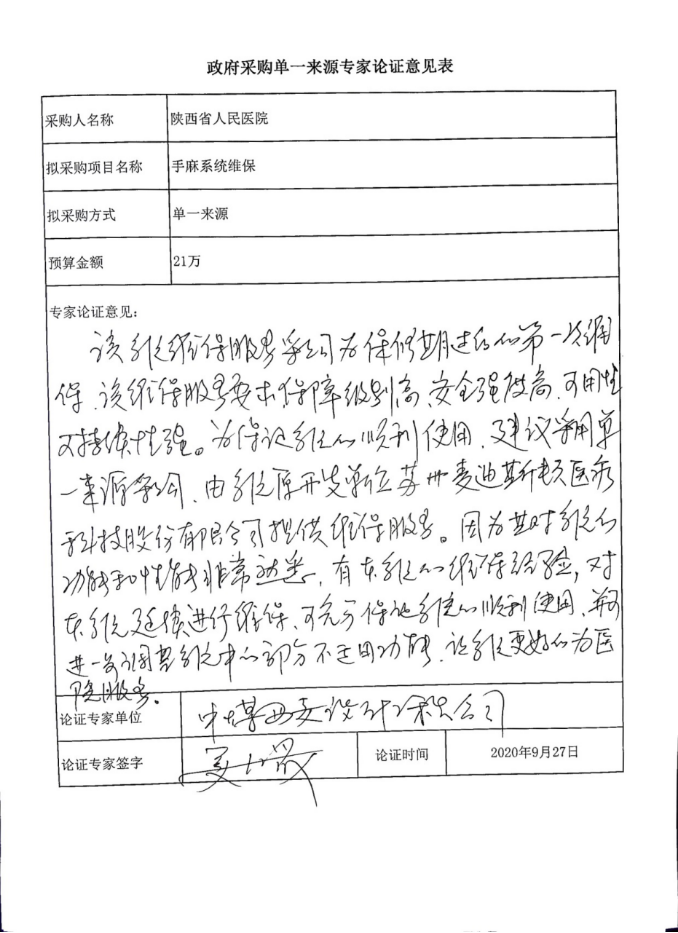 政府采购单一来源专家论证意见表
采购人名称 陕西省人民医院
拟采购项目名称 手麻系统维保
拟采购方式 单一来源
预算金额 21万
专家论证意见：
该系统维保服务采购为保修期过后的第一次维
保，该维保服务要求保障级别高，安全强度高，可用性
可持续性强。为保证系统的顺利使用，建议采用单
一来源采购，由系统原开发单位苏州麦迪斯顿医疗
科技股份有限公司提供维保服务。因为其对系统的
功能和性能非常熟悉，有本系统的维保经验，对
本系统延续进行维保，可充分保证系统的顺利使用，并可
进一步完善系统中的部分不适用功能，让系统更好的为医
院服务。
论证专家单位 中煤西安设计 公司
论证专家签字
论证时间 2020年9月27日